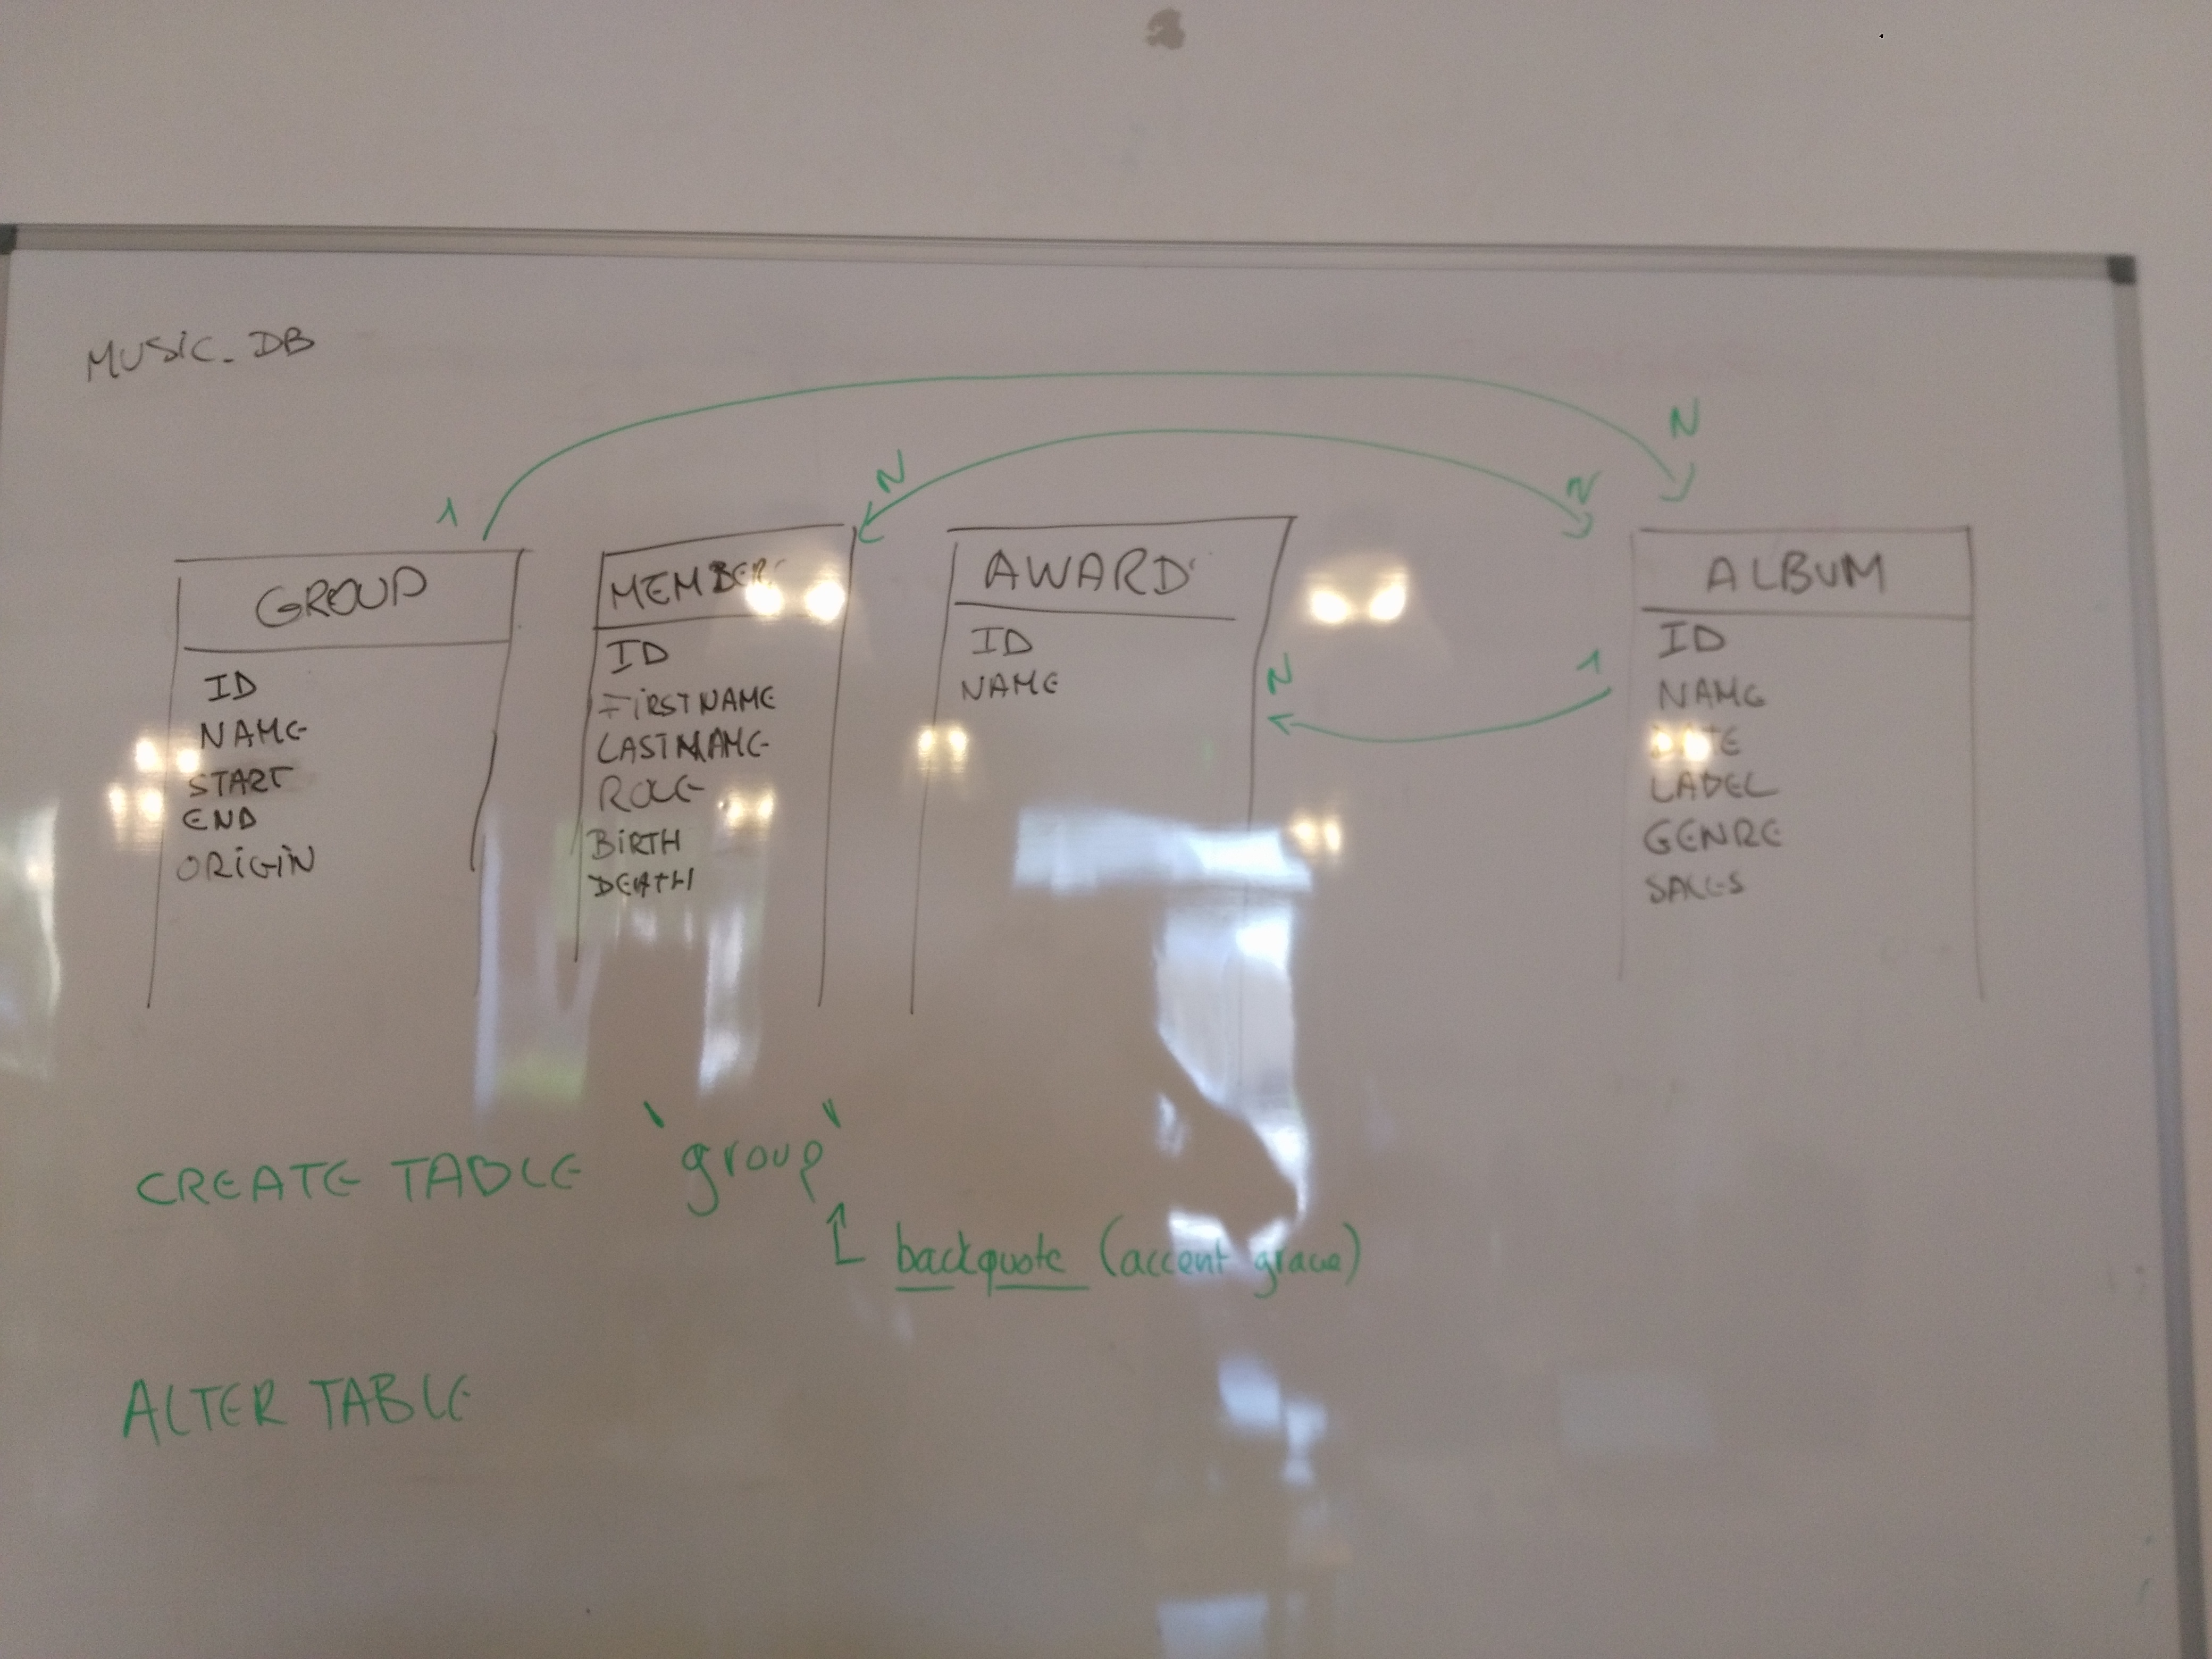 MUSIC_DB
1
N
N
N
GROUP
ID
NAME
START
END
ORIGIN
MEMBER
ID
FIRSTNAME
LASTNAME
ROLE
BIRTH
DEATH
AWARD
ID
NAME
N
1
ALBUM
ID
NAME
DATE
LABEL
GENRE
SALES
CREATE TABLE `group`
backquote (accent grave)
ALTER TABLE